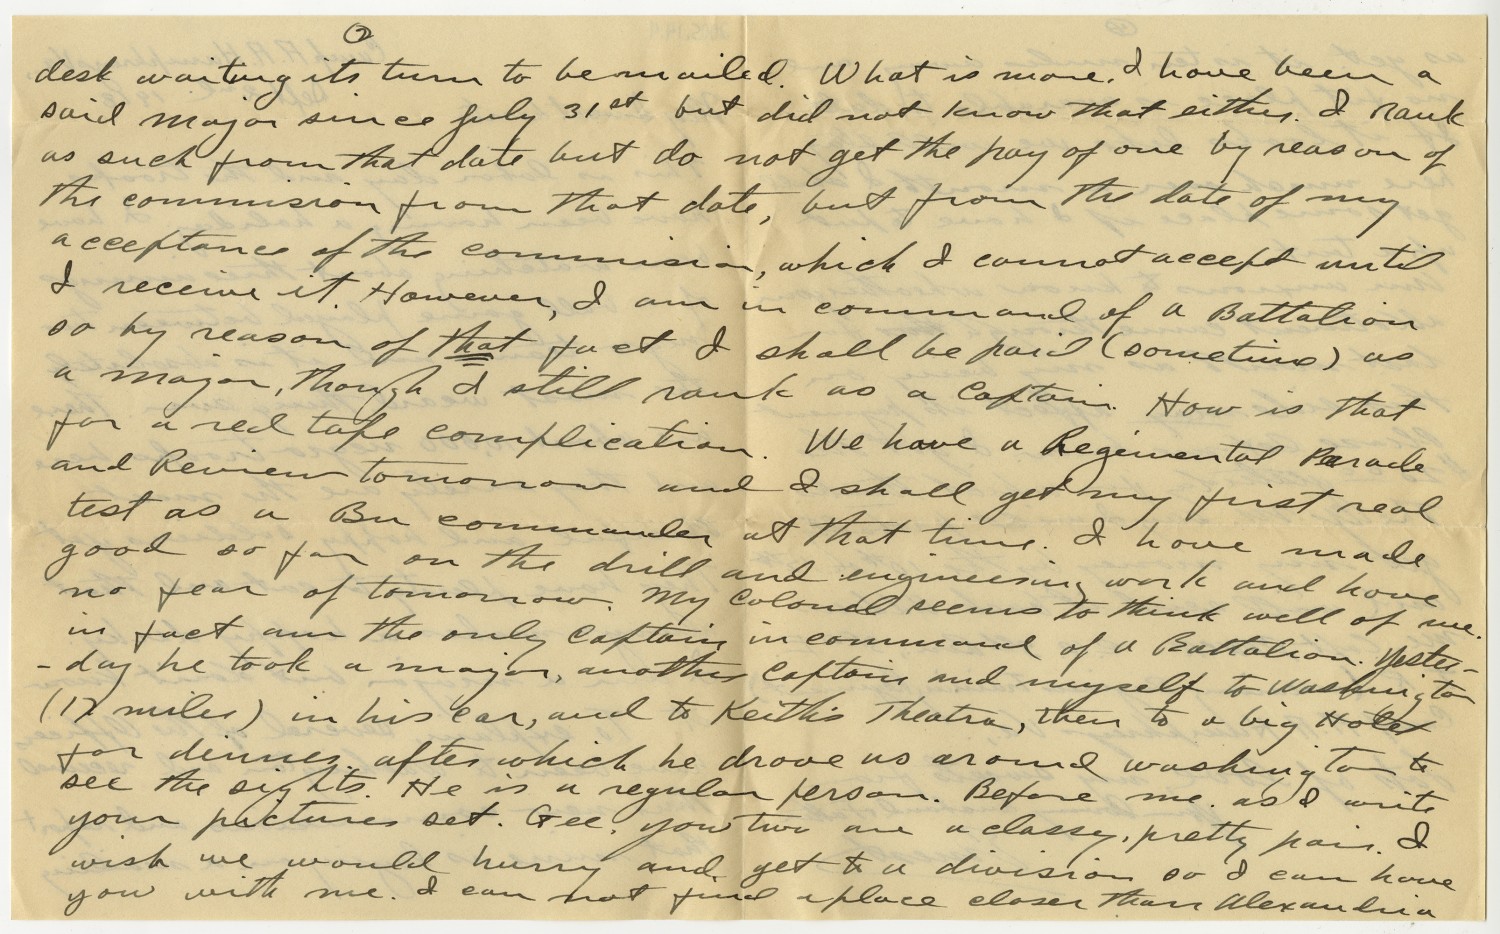 ②
desk waiting its turn to be mailed. What is more, I have been a
said major since July 31st but did not know that either. I rank
as such from that date but do not get the pay of one by reason of
the commision from that date, but from the date of my
acceptance of the commision, which I cannot accept until
I receive it. However, I am in command of a Battalion
so by reason of that fact I shall be paid (sometime) as
a major, though I still rank as a Captain. How is that
for a red tape complication. We have a Regimental Parade
and Review tomorrow and I shall get my first real
test as a Bn commander at that time. I have made
good so far on the drill and engineering work and have
no fear of tomorrow. My Colonel seems to think well of me.
in fact am the only Captain in command of a Battalion. Yester-
-day he took a major, another Captain and myself to Washington
(17 miles) in his car, and to Keith's Theatre, then to a big Hotel
for dinner, after which he drove us around washington to
see the sights. He is a regular person. Before me. as I write
your pictures set. Gee, you two are a classy, pretty pair. I
wish we would hurry and get to a division so I can have
you with me. I can not find a place closer than Alexandria